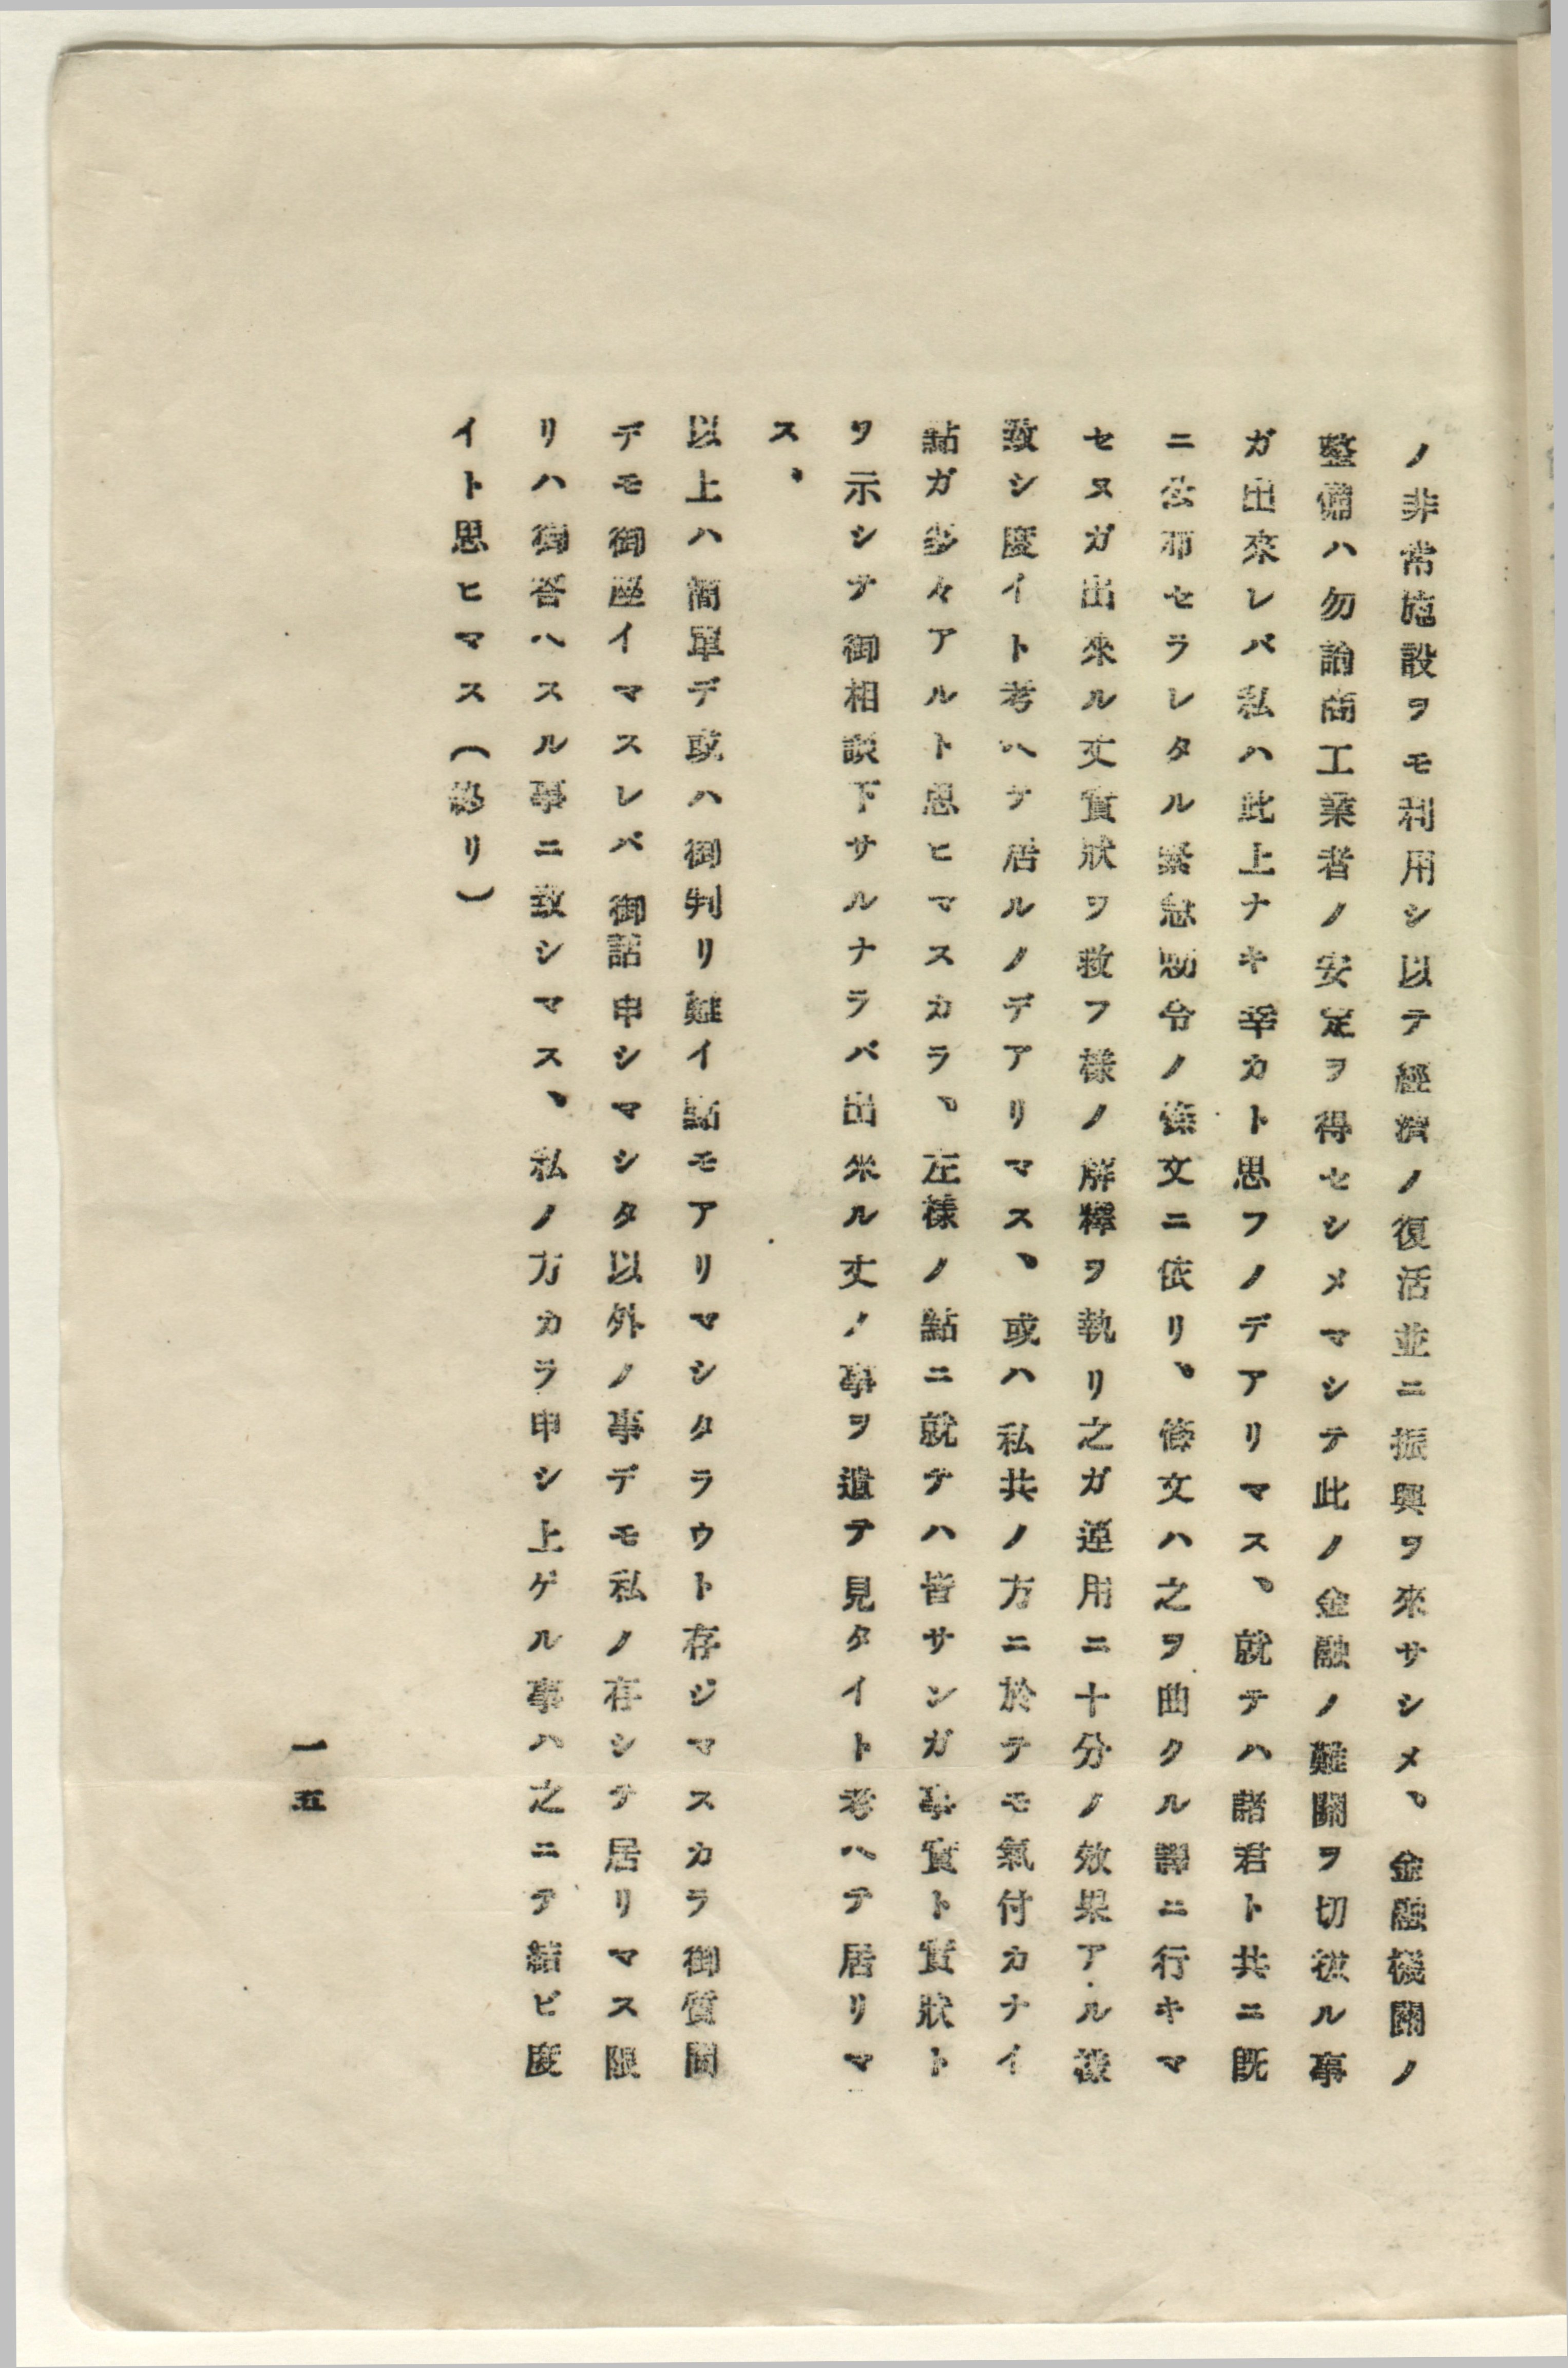 ノ非常施設ヲモ利用シ以テ經濟ノ復活並ニ振興ヲ來サシメ、金融機關ノ
整備ハ勿論商工業者ノ安定ヲ得セシメマシテ此ノ金融ノ難關ヲ切彼ル事
ガ出來レバ私ハ此上ナキ幸カト思フノデアリマス、就テハ諸君ト共ニ既
ニ公布セラレタル緊急勅令ノ條文ニ依リ、條文ハ之ヲ曲クル譯ニ行キマ
セヌガ出來ル丈實狀ヲ救フ樣ノ解釋ヲ執リ之ガ運用ニ十分ノ效果アル樣
致シ度イト考ヘテ居ルノデアリマス、或ハ私共ノ方ニ於テモ氣付カナイ
點ガ多々アルト思ヒマスカラ、左樣ノ點ニ就テハ皆サンガ事實ト實狀ト
ヲ示シテ御相談下サルナラバ出來ル丈ノ事ヲ遣テ見タイト考ヘテ居リマ
ス、
以上ハ簡單デ或ハ御判リ難イ點モアリマシタラウト存ジマスカラ御質問
デモ御座イマスレバ御話申シマシタ以外ノ事デモ私ノ存シテ居リマス限
リハ御答ヘスル事ニ致シマス、私ノ方カラ申シ上ゲル事ハ之ニテ結ビ度
イト思ヒマス（終リ）
一五